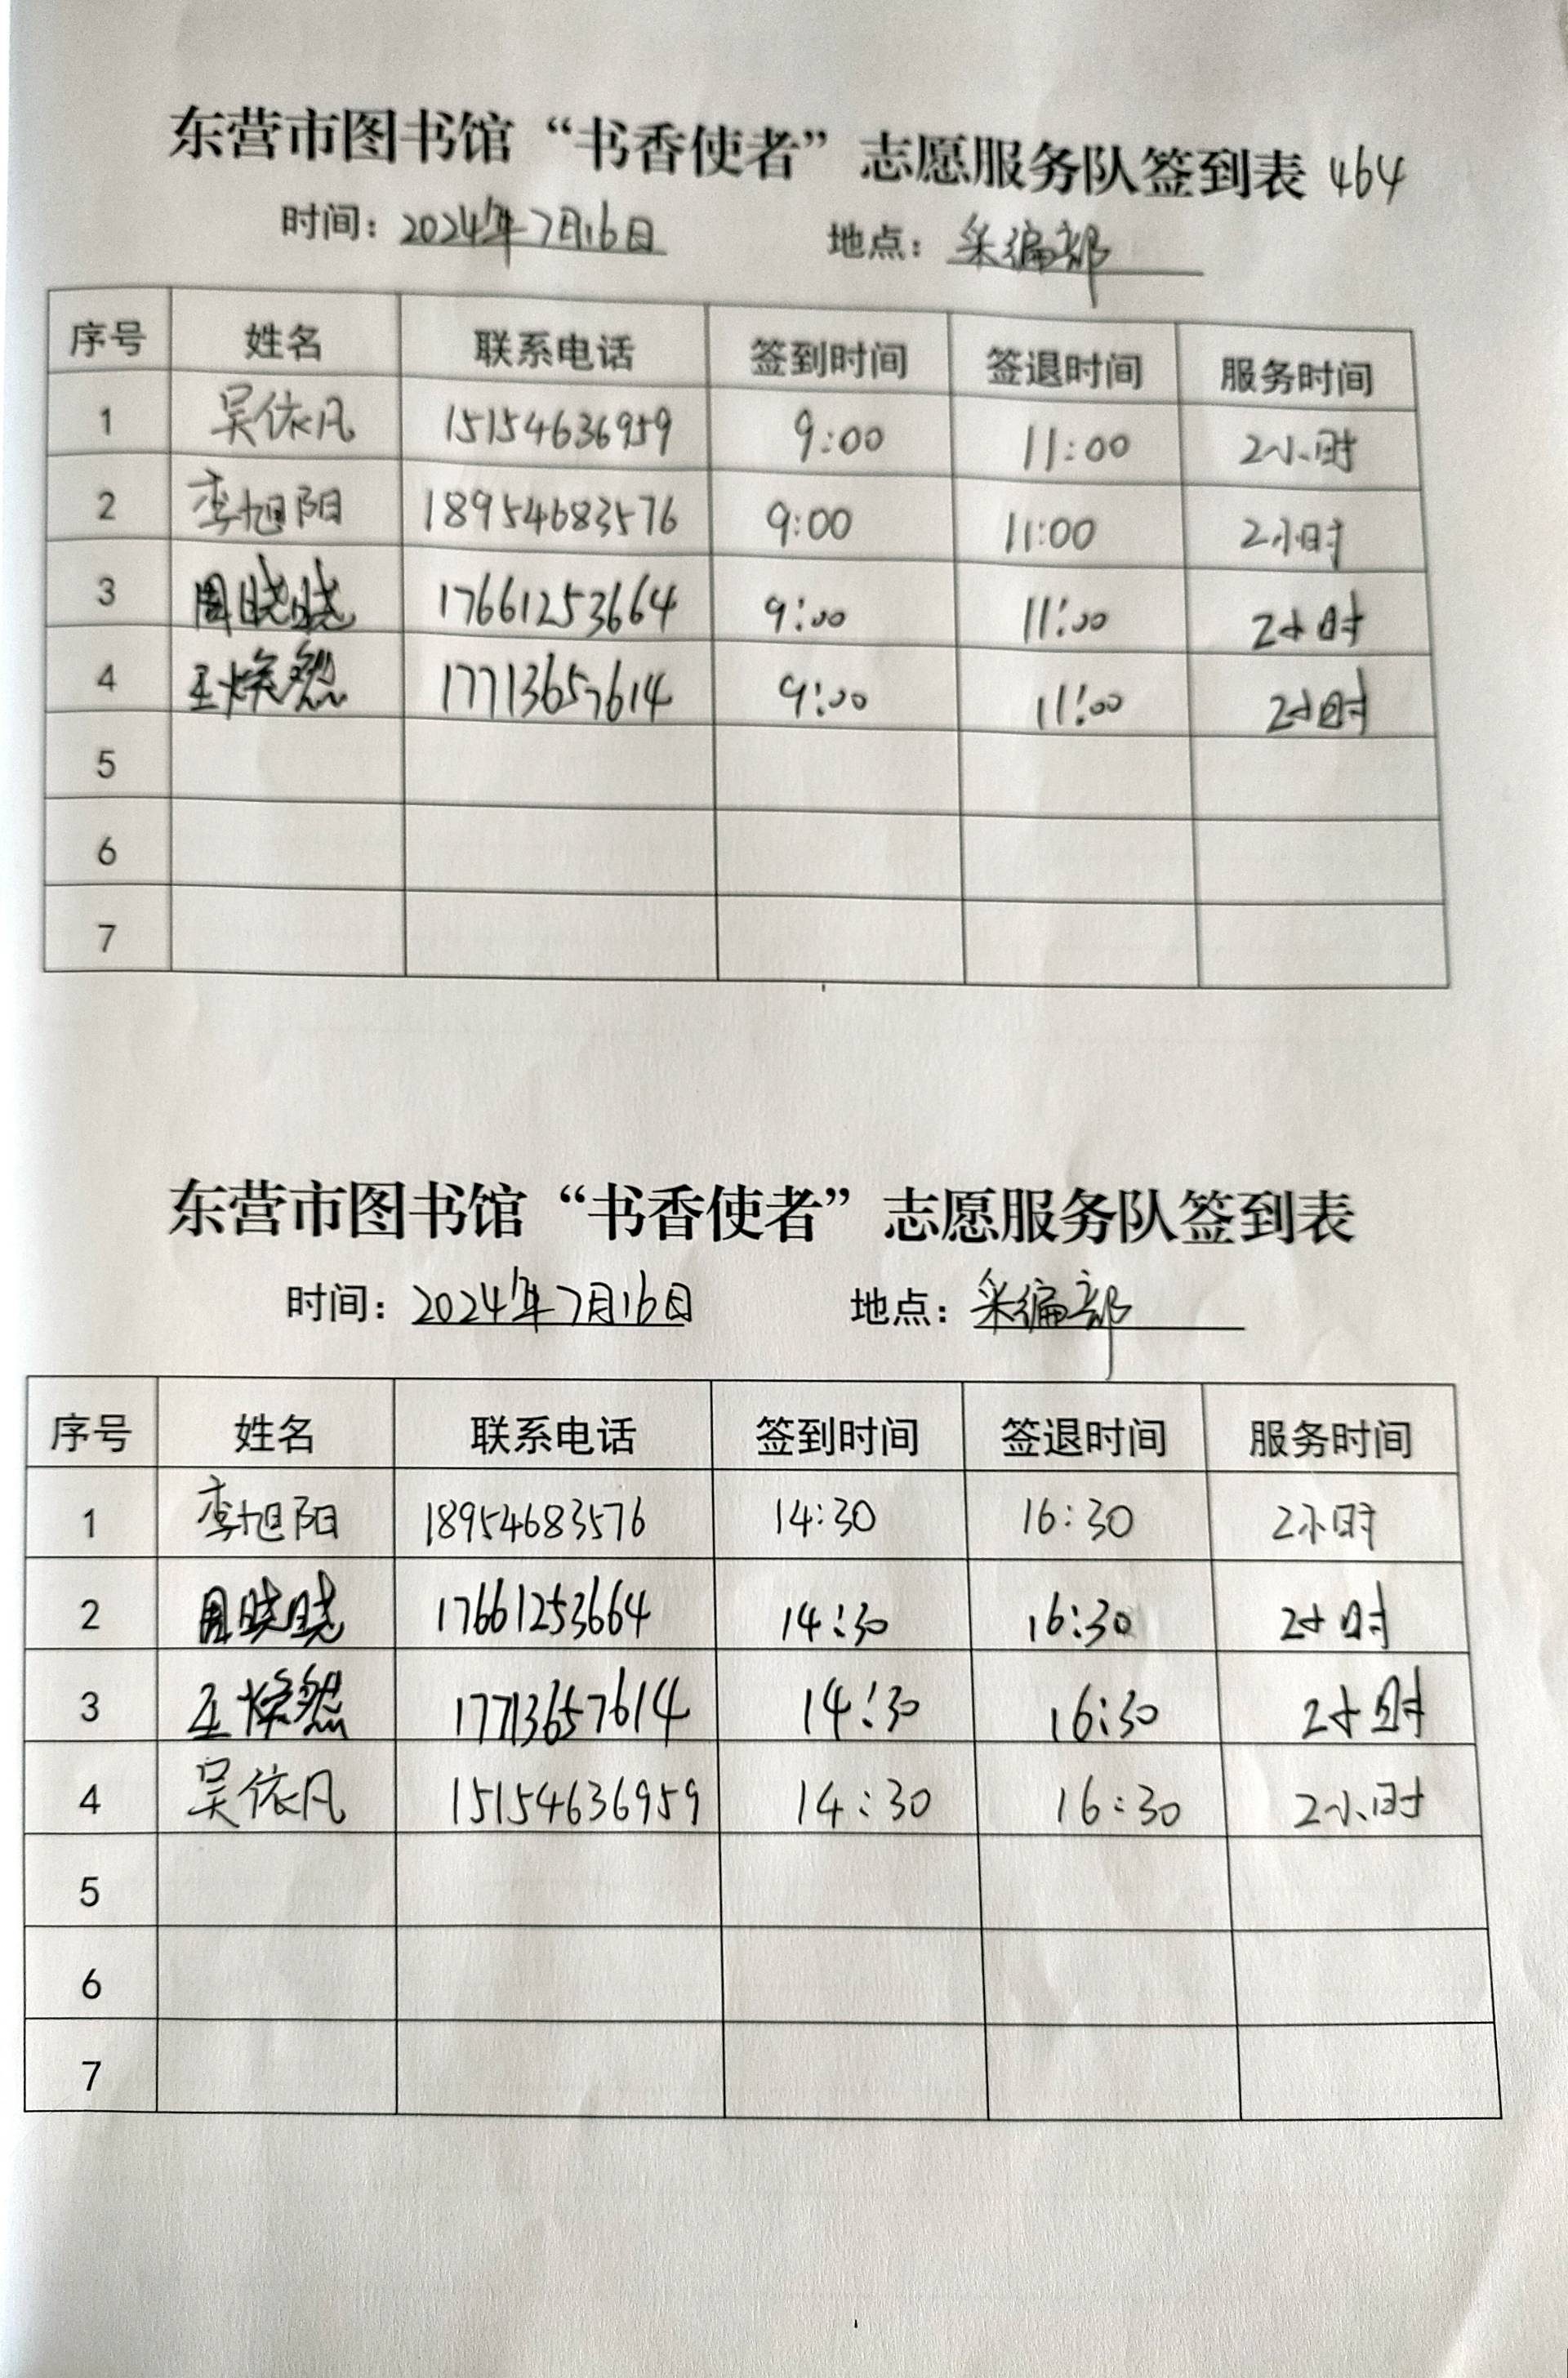 东营市图书馆“书香使者”志愿服务队签到表 464
时间：2024年7月16日 地点：采编部
序号 姓名 联系电话 签到时间 签退时间 服务时间
1 吴依凡 15154636959 9:00 11:00 2小时
2 李旭阳 18954683576 9:00 11:00 2小时
3 周晓晓 17661253664 9:00 11:00 2小时
4 王焕然 17713657614 9:00 11:00 2小时
5
6
7
东营市图书馆“书香使者”志愿服务队签到表
时间：2024年7月16日 地点：采编部
序号 姓名 联系电话 签到时间 签退时间 服务时间
1 李旭阳 18954683576 14:30 16:30 2小时
2 周晓晓 17661253664 14:30 16:30 2小时
3 王焕然 17713657614 14:30 16:30 2小时
4 吴依凡 15154636959 14:30 16:30 2小时
5
6
7